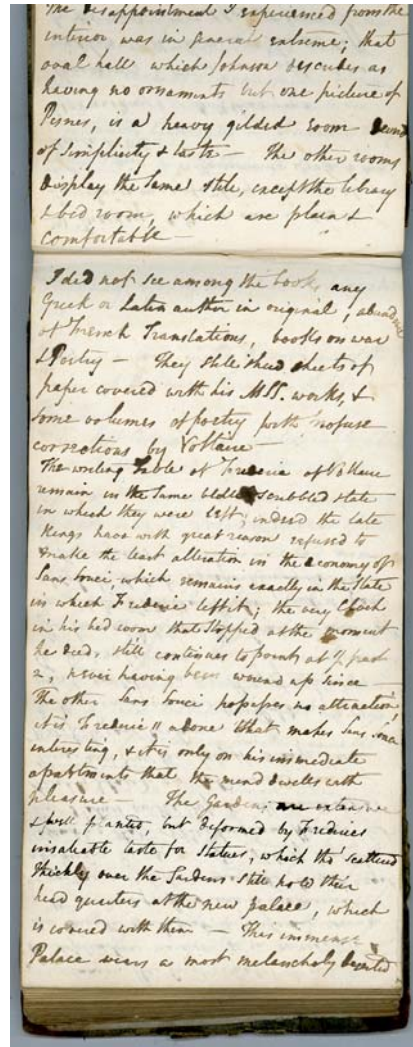 The disappointment I experienced from the
interior was in general extreme; that
oval hall which Johnson describes as
having no ornaments but one picture of
Pesnes, is a heavy gilded room devoid
of simplicity & taste — The other rooms
display the same stile, except the library
& bed room, which are plain &
comfortable —
I did not see among the books any
Greek or Latin author in original, abundance
of French Translations, books on war
& Poetry — They still shew sheets of
paper covered with his MSS. works, &
some volumes of poetry with profuse
corrections by Voltaire —
The writing table of Frederic of Voltaire
remain in the same scribbled state
in which they were left; indeed the late
Kings have with great reason refused to
make the least alteration in the economy of
Sans Souci, which remains exactly in the State
in which Frederic left it; the very Clock
in his bed room that stopped at the moment
he died, still continues to point at past
2, never having been wound up since —
The other Sans Souci possesses no attraction,
it is Frederic alone that makes Sans Souci
interesting, & it is only on his immediate
apartments that the mind dwells with
pleasure — The Gardens are extensive
& well planted, but deformed by Frederics
insatiable taste for statues, which tho' scattered
thickly over the Gardens still hold their
head quarters at the new palace, which
is covered with them — This immense
Palace wears a most melancholy deserted